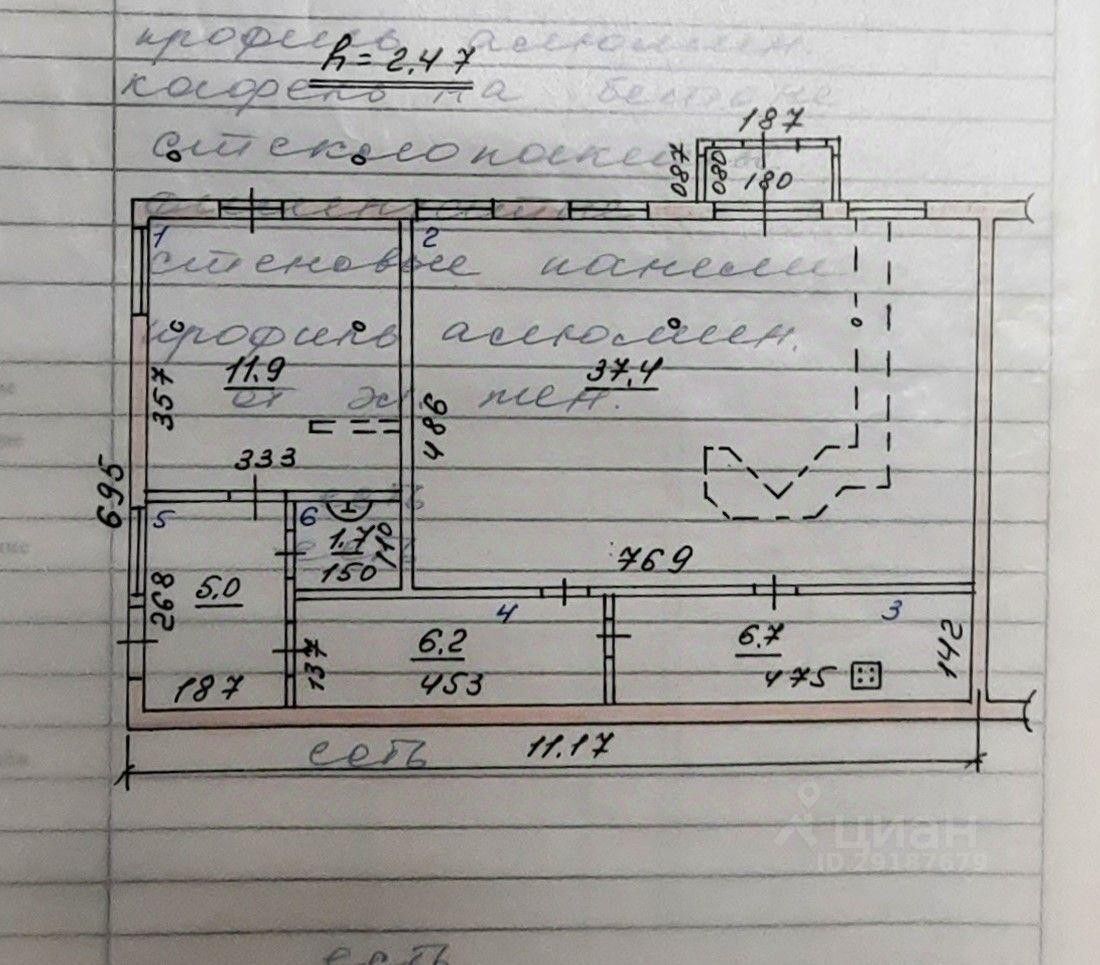 профиль алюмин
h=2.47
кафель на бетоне
187
087
080
180
1
2
стеновые панели
профиль алюмин.
11.9
37,4
357
486
333
695
5
6
1.7
110
150
769
268
5.0
4
3
6.2
6.7
137
142
187
453
475
есть
11.17
циан
ID:29187679
есть